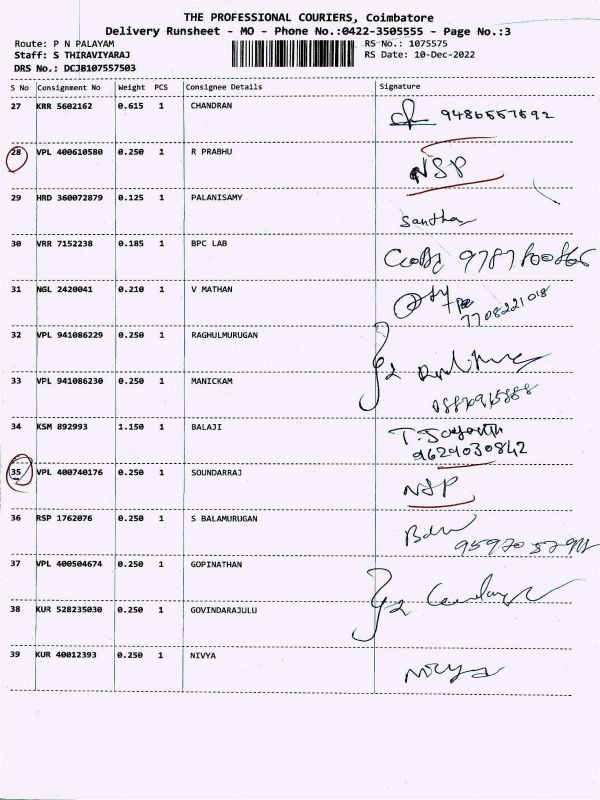 THE PROFESSIONAL COURIERS, Coimbatore
Delivery Runsheet - MO - Phone No.:0422-3505555 - Page No.:3
Route: P N PALAYAM RS No.: 1075575
Staff: S THIRAVIYARAJ RS Date: 10-Dec-2022
DRS No.: DCJB107557503
S No Consignment No Weight PCS Consignee Details Signature
27 KRR 5602162 0.615 1 CHANDRAN
28 VPL 400610580 0.250 1 R PRABHU NSP
29 HRD 360072879 0.125 1 PALANISAMY Santha
30 VRR 7152238 0.185 1 BPC LAB
31 NGL 2420041 0.210 1 V MATHAN
7708221018
32 VPL 941086229 0.250 1 RAGHULMURUGAN
33 VPL 941086230 0.250 1 MANICKAM
34 KSM 892993 1.150 1 BALAJI
9629030842
35 VPL 400740176 0.250 1 SOUNDARRAJ NSP
36 RSP 1762076 0.250 1 S BALAMURUGAN
37 VPL 400504674 0.250 1 GOPINATHAN
38 KUR 528235030 0.250 1 GOVINDARAJULU
39 KUR 40012393 0.250 1 NIVYA